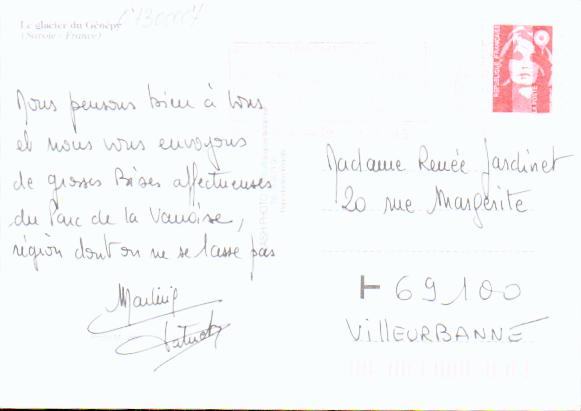 Le glacier du Génépy
(Savoie - France)
Nous pensons bien à vous
et nous vous envoyons
de grosses Bises affectueuses
du Parc de la Vanoise,
région dont on ne se lasse pas
Martine
REPUBLIQUE FRANÇAISE
LA POSTE
Madame Renée Jardinet
20 rue Margerite
69100
VILLEURBANNE